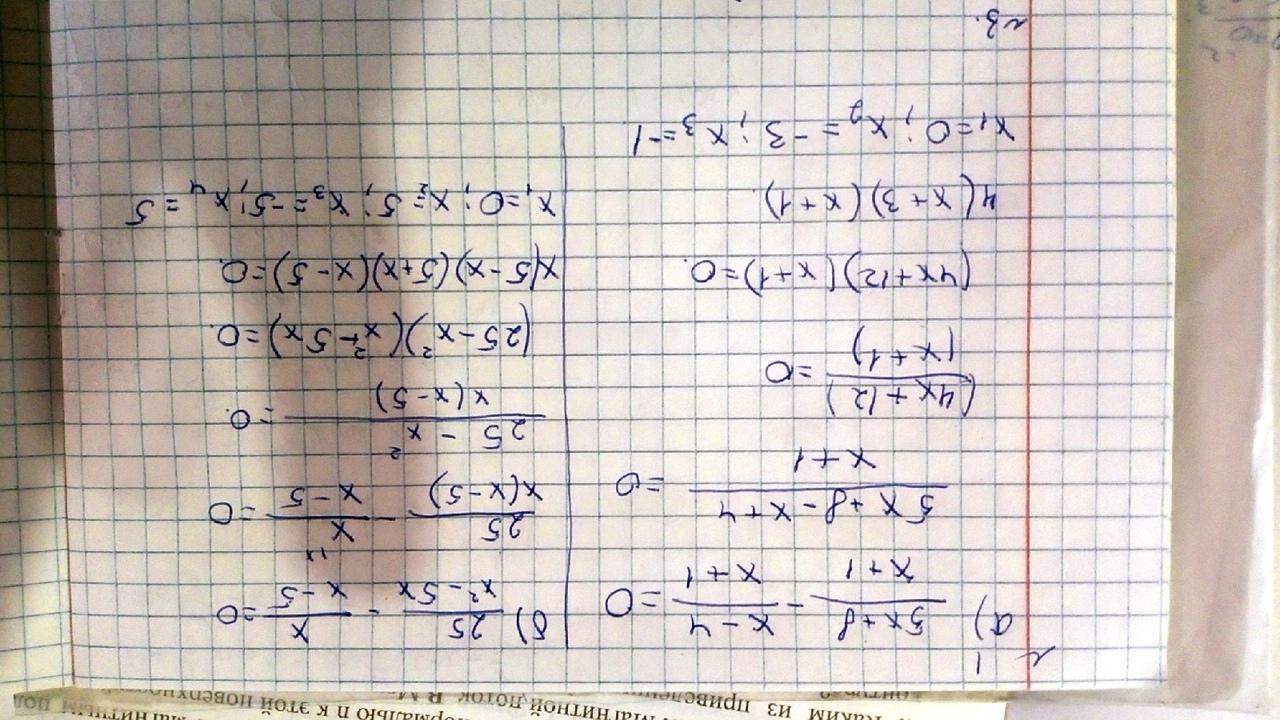 № 1
а) 5x+8/x+1 - x-4/x+1 = 0
5x+8-x+4/x+1 = 0
(4x+12)/(x+1) = 0
(4x+12)(x+1)=0.
4(x+3)(x+1).
x₁=0; x₂=-3; x₃=-1
№3.
б) 25/x²-5x - x/x-5 = 0
25/x(x-5) - x/x-5 = 0
25-x²/x(x-5) = 0.
(25-x²)(x²-5x)=0.
x(5-x)(5+x)(x-5)=0.
x₁=0; x₂=5; x₃=-5; x₄=5
каким из приведенн
магнитной поток
нормалью n к этой поверхности
магнитным пол